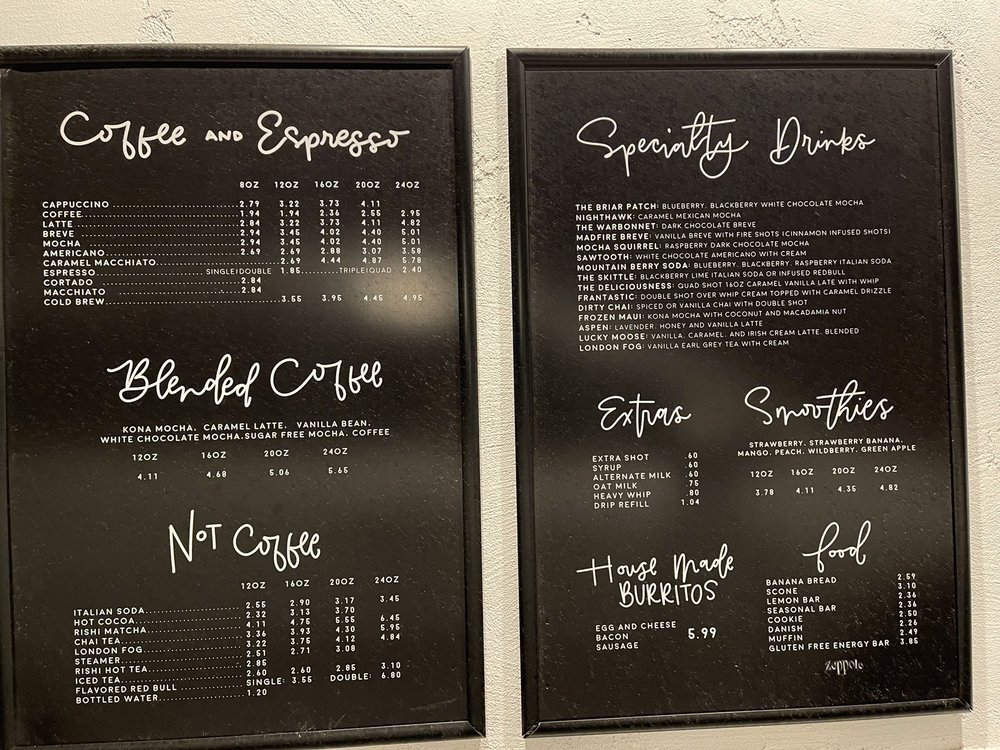 Coffee AND Espresso
8OZ 12OZ 16OZ 20OZ 24OZ
CAPPUCCINO 2.79 3.22 3.73 4.11
COFFEE 1.94 1.94 2.36 2.55 2.95
LATTE 2.84 3.22 3.73 4.11 4.82
BREVE 2.94 3.45 4.02 4.40 5.01
MOCHA 2.94 3.45 4.02 4.40 5.01
AMERICANO 2.69 2.69 2.88 3.07 3.58
CARAMEL MACCHIATO 2.69 4.44 4.87 5.78
ESPRESSO SINGLE|DOUBLE 1.85 TRIPLE|QUAD 2.40
CORTADO 2.84
MACCHIATO 2.84
COLD BREW 3.55 3.95 4.45 4.95
Blended Coffee
KONA MOCHA. CARAMEL LATTE. VANILLA BEAN.
WHITE CHOCOLATE MOCHA.SUGAR FREE MOCHA. COFFEE
12OZ 16OZ 20OZ 24OZ
4.11 4.68 5.06 5.65
NOT Coffee
12OZ 16OZ 20OZ 24OZ
ITALIAN SODA 2.55 2.90 3.17 3.45
HOT COCOA 2.32 3.13 3.70
RISHI MATCHA 4.11 4.75 5.55 6.45
CHAI TEA 3.36 3.93 4.30 5.95
LONDON FOG 3.22 3.75 4.12 4.84
STEAMER 2.51 2.71 3.08
RISHI HOT TEA 2.85
ICED TEA 2.60 2.60 2.85 3.10
FLAVORED RED BULL SINGLE: 3.55 DOUBLE: 6.80
BOTTLED WATER 1.20
Specialty Drinks
THE BRIAR PATCH: BLUEBERRY. BLACKBERRY WHITE CHOCOLATE MOCHA
NIGHTHAWK: CARAMEL MEXICAN MOCHA
THE WARBONNET: DARK CHOCOLATE BREVE
MADFIRE BREVE: VANILLA BREVE WITH FIRE SHOTS (CINNAMON INFUSED SHOTS)
MOCHA SQUIRREL: RASPBERRY DARK CHOCOLATE MOCHA
SAWTOOTH: WHITE CHOCOLATE AMERICANO WITH CREAM
MOUNTAIN BERRY SODA: BLUEBERRY. BLACKBERRY. RASPBERRY ITALIAN SODA
THE SKITTLE: BLACKBERRY LIME ITALIAN SODA OR INFUSED REDBULL
THE DELICIOUSNESS: QUAD SHOT 16OZ CARAMEL VANILLA LATE WITH WHIP
FRANTASTIC: DOUBLE SHOT OVER WHIP CREAM TOPPED WITH CARAMEL DRIZZLE
DIRTY CHAI: SPICED OR VANILLA CHAI WITH DOUBLE SHOT
FROZEN MAUI: KONA MOCHA WITH COCONUT AND MACADAMIA NUT
ASPEN: LAVENDER. HONEY AND VANILLA LATTE
LUCKY MOOSE: VANILLA. CARAMEL. AND IRISH CREAM LATTE. BLENDED
LONDON FOG: VANILLA EARL GREY TEA WITH CREAM
Extras
EXTRA SHOT .60
SYRUP .60
ALTERNATE MILK .60
OAT MILK .75
HEAVY WHIP .80
DRIP REFILL 1.04
Smoothies
STRAWBERRY. STRAWBERRY BANANA.
MANGO. PEACH. WILDBERRY. GREEN APPLE
12OZ 16OZ 20OZ 24OZ
3.78 4.11 4.35 4.82
House Made
BURRITOS
EGG AND CHEESE
BACON 5.99
SAUSAGE
food
BANANA BREAD 2.59
SCONE 3.10
LEMON BAR 2.36
SEASONAL BAR 2.36
COOKIE 2.50
DANISH 2.26
MUFFIN 2.49
GLUTEN FREE ENERGY BAR 3.85
zeppole